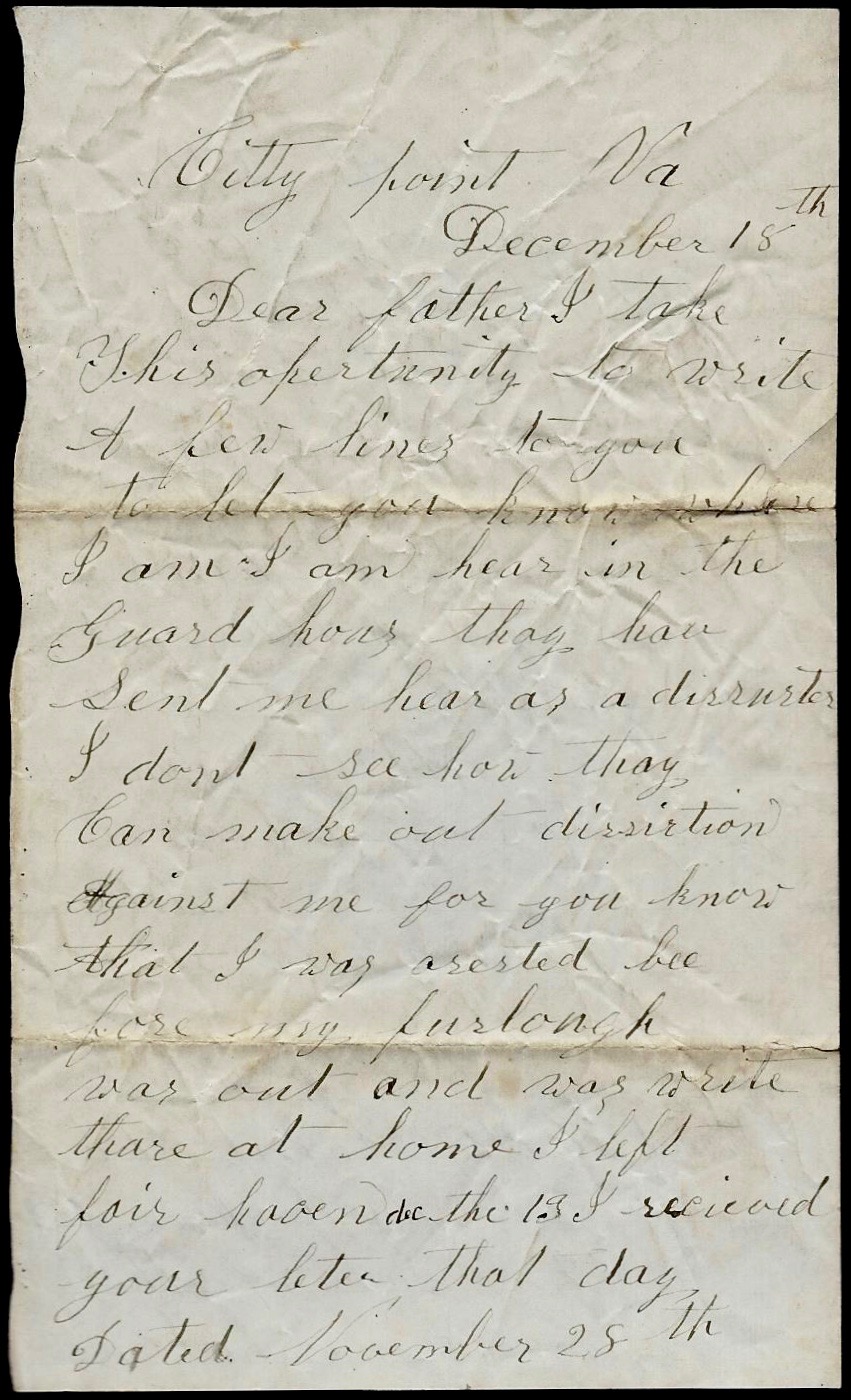 Citty point Va
December 18th
Dear father I take
This opertunity to write
A few lines to you
to let you know whare
I am I am hear in the
Guard hous thay hav
Sent me hear as a dissurter
I dont see how thay
Can make out dissirtion
Against me for you know
that I was arested bee
fore my furlongh
was out and was write
thare at home I left
fair haven dec the 13 I recieved
your leter that day
Dated November 28th